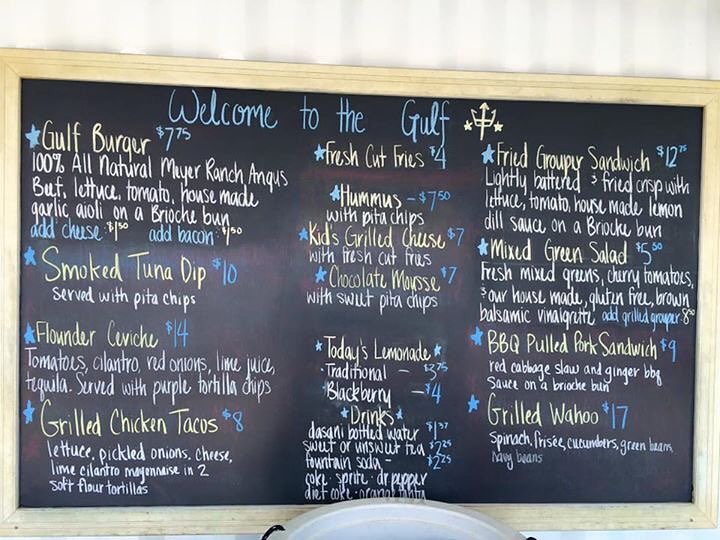 Welcome to the Gulf
Gulf Burger $7.75
100% All Natural Meyer Ranch Angus
Beef, lettuce, tomato, house made
garlic aioli on a Brioche bun
add cheese: $1.50 add bacon: $1.50
Smoked Tuna Dip $10
served with pita chips
Flounder Ceviche $14
Tomatoes, cilantro, red onions, lime juice,
tequila. Served with purple tortilla chips
Grilled Chicken Tacos $8
lettuce, pickled onions, cheese,
lime cilantro mayonnaise in 2
soft flour tortillas
Fresh Cut Fries $4
Hummus - $7.50
with pita chips
Kid's Grilled Cheese $7
with fresh cut fries
Chocolate Mousse $7
with sweet pita chips
Today's Lemonade
Traditional - $3.75
Blackberry - $4
Drinks
dasani bottled water $1.37
sweet or unsweet tea $2.25
fountain soda - $2.25
coke · sprite · dr pepper
diet coke · orange fanta
Fried Grouper Sandwich $12.75
Lightly battered & fried crisp with
lettuce, tomato, house made lemon
dill sauce on a Brioche bun
Mixed Green Salad $5.50
Fresh mixed greens, cherry tomatoes,
& our house made, gluten free, brown
balsamic vinaigrette add grilled grouper 8.50
BBQ Pulled Pork Sandwich $9
red cabbage slaw and ginger bbq
sauce on a brioche bun
Grilled Wahoo $17
Spinach, frisée, cucumbers, green beans,
navy beans